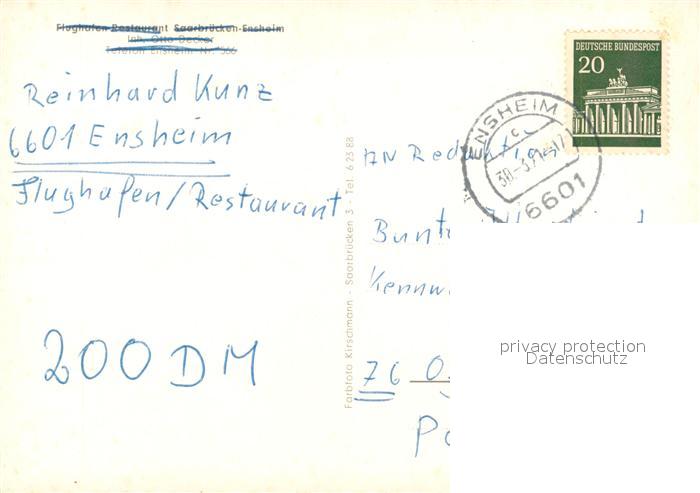 Flughafen-Restaurant Saarbrücken-Ensheim
Inh. Otto Becker
Telefon Ensheim Nr. 566
Reinhard Kunz
6601 Ensheim
Flughafen/Restaurant
200 DM
Farbfoto Kirschmann - Saarbrücken 3 - Tel. 6 25 88
DEUTSCHE BUNDESPOST
20
ENSHEIM
c
6601
AN Redaktion
Bunt
Kennw
76 O
Po
privacy protection
Datenschutz